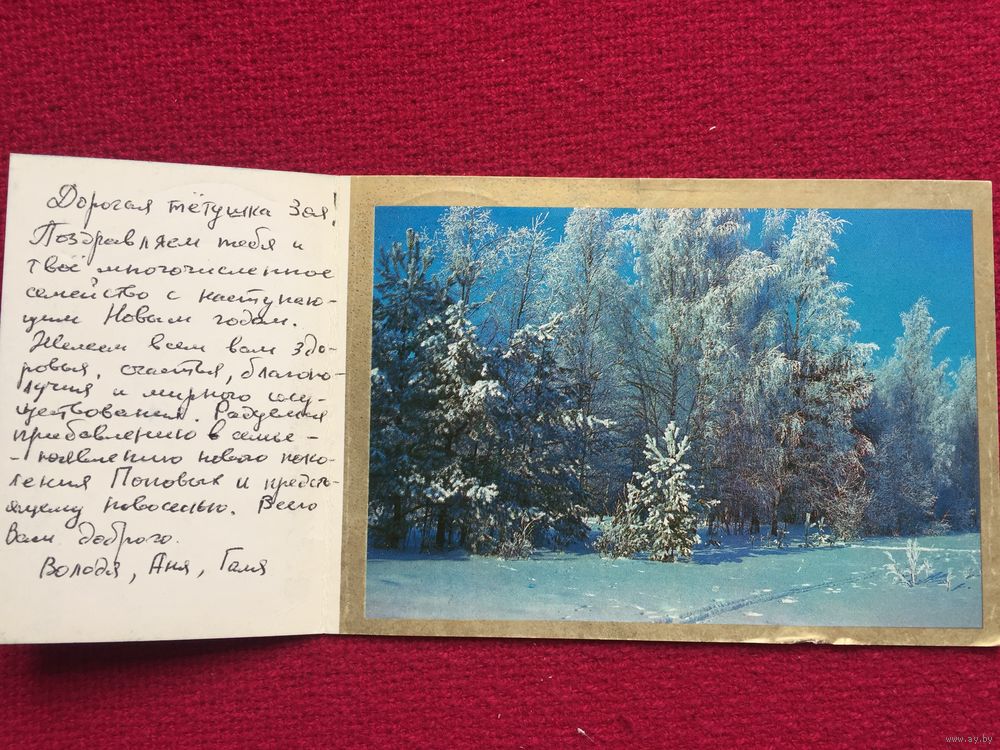 Дорогая тётушка Зоя!
Поздравляем тебя и
твоё многочисленное
семейство с наступаю-
щим Новым годом.
Желаем всем вам здо-
ровья, счастья, благопо-
лучия и мирного сущ-
ществования. Радуемся
прибавлению в семье -
- появлению нового поко-
ления Поповых и предсто-
ящему новоселью. Всего
Вам доброго.
Володя, Аня, Галя
www.ay.by